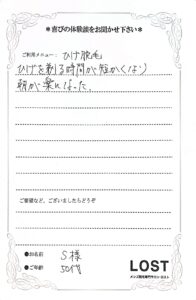 ＊喜びの体験談をお聞かせ下さい＊
ご利用メニュー： ひげ脱毛
ひげを剃る時間が短かくなり
朝が楽になった。
ご要望など、ございましたらどうぞ
●お名前 S様
●ご年齢 50代
LOST
メンズ脱毛専門サロン ロスト